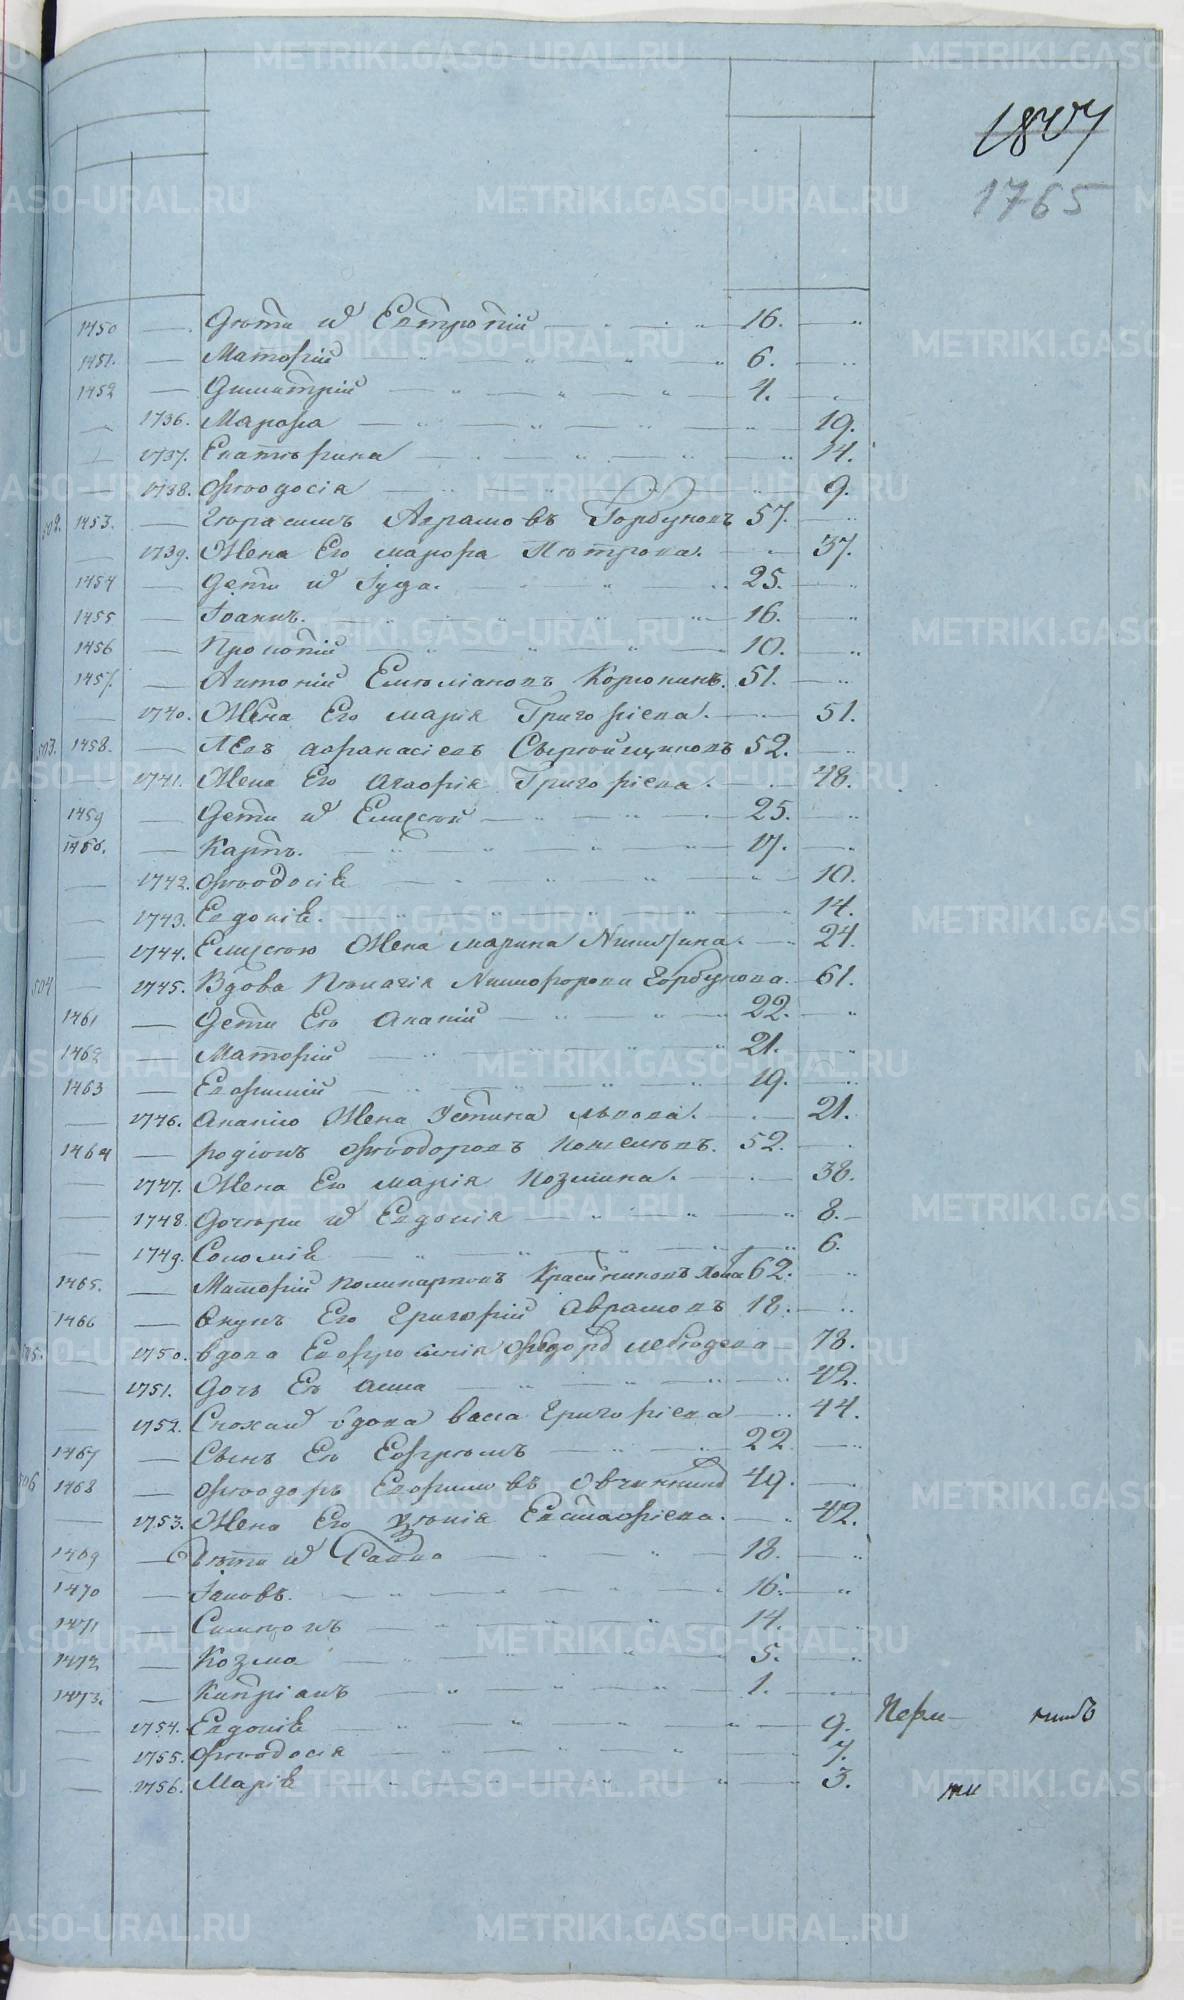 1807
1765
1450 — Дѣти Ея Евтропiй 16.
1451. — Матфiй 6.
1452 — Димитрiй 4.
— 1736. Марфа 19.
— 1737. Екатѣрина 14.
— 1738. Феодосiя 9.
502. 1453. — Герасимъ Аврамовъ Горбуновъ 57.
— 1739. Жена Его марфа Пѣтрова. 37.
1454 — Дети Iуда. 25.
1455 — Iоаннъ. 16.
1456 — Прокопiй 10.
1457. — Антонiй Емелiановъ 51.
— 1740. Жена Его марiя Григорiева. 51.
503. 1458. — Левъ афанасiевъ 52.
— 1741. Жена Его Агафiя Григорiева. 48.
1459 — Дети Елисей 25.
1460. — Карпъ. 17.
— 1742. Феодосiя 10.
— 1743. Евдокiя. 14.
— 1744. Елисею Жена марина Никитина. 24.
504 — 1745. Вдова Пелагiя Никифорова Горбунова. 61.
1461 — Дети Ея Ананiй 22.
1462 — Матфiй 21.
1463 — Евфимiй 19.
— 1746. Ананiю Жена Устина львова. 21.
1464 — родiонъ феодоровъ 52.
— 1747. Жена Его марiя козмина. 38.
— 1748. Дочери Евдокiя 8.
— 1749. Соломiя 6.
1465. — Матфiй поликарповъ Красильниковъ 62.
1466 — Внукъ Его Григорiй Аврамовъ 18.
505. — 1750. вдова Евфросинiя 78.
— 1751. Дочь Ея анна 42.
— 1752. вдова васса Григорiева 44.
1467 — Сынъ Ея Ефремъ 22
506 1468 — феодоръ Евфимовъ Овчинник 49.
— 1753. Жена Его Евстафiева. 42.
1469 — Дѣти Савва 18.
1470 — Iаковъ. 16.
1471 — Симеонъ 14.
1472 — Козма 5.
1473. — Кипрiанъ 1.
— 1754. Евдокiя 9.
— 1755. Феодосiя 7.
— 1756. Марiя 3.